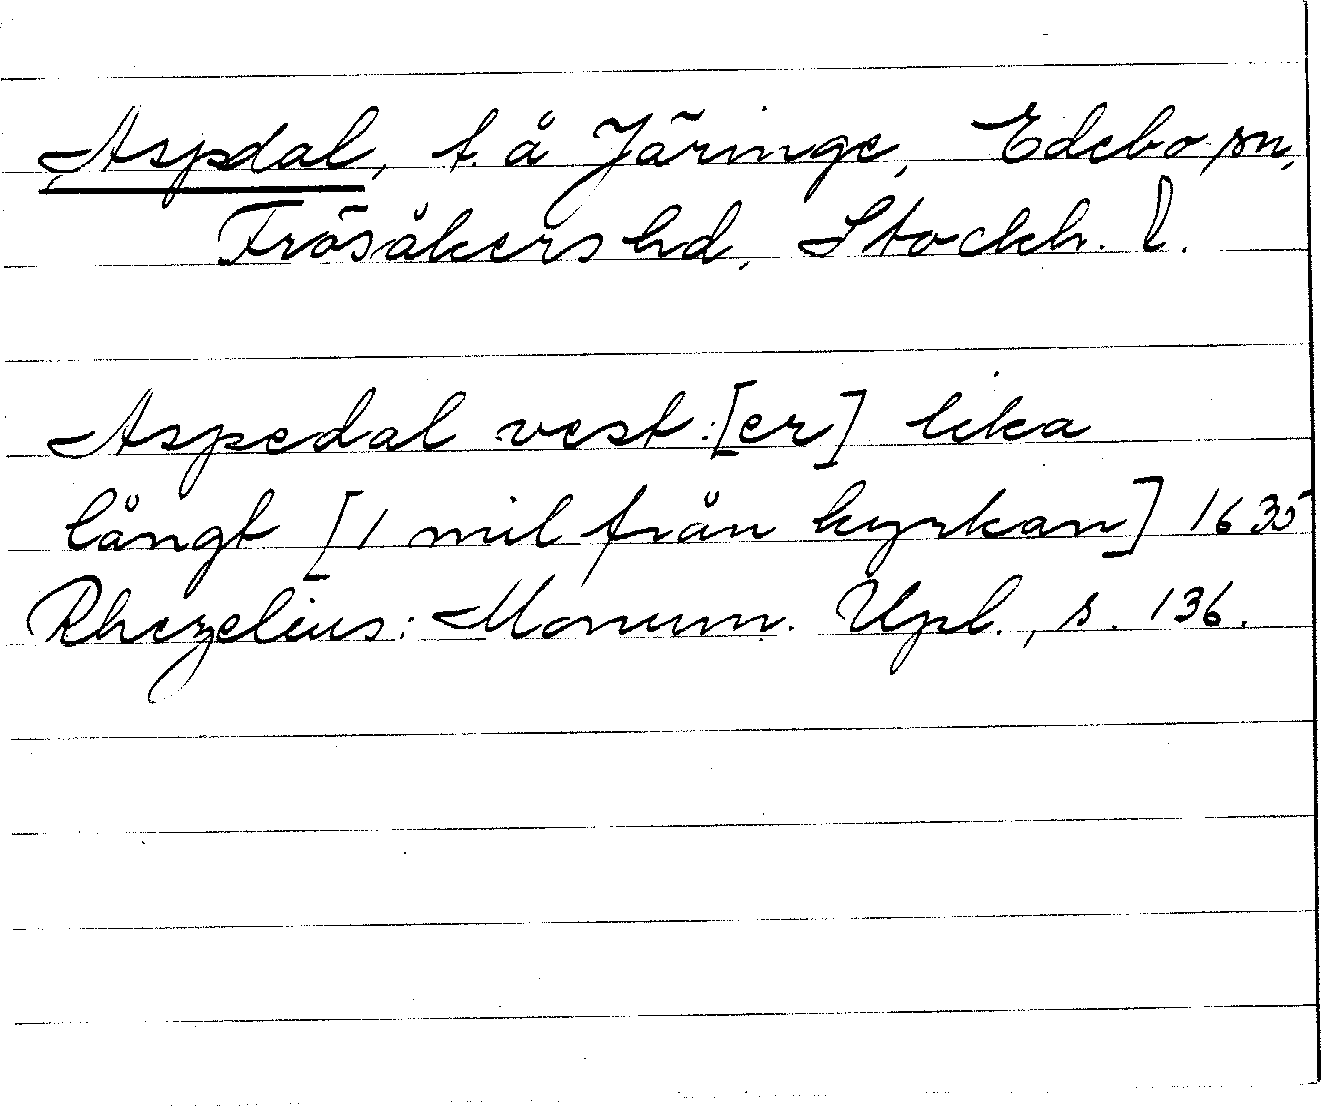 Aspdal, t. å Järinge, Edebo sn,
Frösåkers hd, Stockh. l.
Aspedal vest:[er] lika
långt [1 mil från kyrkan] 1635
Rhezelius: Monum. Upl., s. 136.